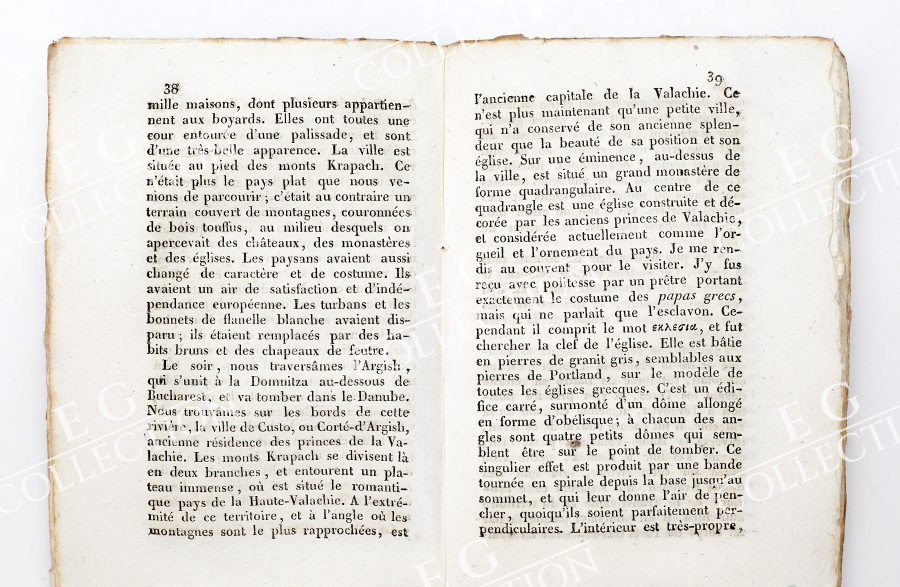 38
mille maisons, dont plusieurs appartien-
nent aux boyards. Elles ont toutes une
cour entourée d'une palissade, et sont
d'une très-belle apparence. La ville est
située au pied des monts Krapach. Ce
n'était plus le pays plat que nous ve-
nions de parcourir ; c'était au contraire un
terrain couvert de montagnes, couronnées
de bois touffus, au milieu desquels on
apercevait des châteaux, des monastères
et des églises. Les paysans avaient aussi
changé de caractère et de costume. Ils
avaient un air de satisfaction et d'indé-
pendance européenne. Les turbans et les
bonnets de flanelle blanche avaient dis-
paru ; ils étaient remplacés par des ha-
bits bruns et des chapeaux de feutre.
Le soir, nous traversâmes l'Argish,
qui s'unit à la Domnitza au-dessous de
Bucharest, et va tomber dans le Danube.
Nous trouvâmes sur les bords de cette
rivière, la ville de Custo, ou Corté-d'Argish,
ancienne résidence des princes de la Va-
lachie. Les monts Krapach se divisent là
en deux branches, et entourent un pla-
teau immense, où est situé le romanti-
que pays de la Haute-Valachie. A l'extré-
mité de ce territoire, et à l'angle où les
montagnes sont le plus rapprochées, est
39
l'ancienne capitale de la Valachie. Ce
n'est plus maintenant qu'une petite ville,
qui n'a conservé de son ancienne splen-
deur que la beauté de sa position et son
église. Sur une éminence, au-dessus de
la ville, est situé un grand monastère de
forme quadrangulaire. Au centre de ce
quadrangle est une église construite et dé-
corée par les anciens princes de Valachie,
et considérée actuellement comme l'or-
gueil et l'ornement du pays. Je me ren-
dis au couvent pour le visiter. J'y fus
reçu avec politesse par un prêtre portant
exactement le costume des papas grecs,
mais qui ne parlait que l'esclavon. Ce-
pendant il comprit le mot εκλεσια, et fut
chercher la clef de l'église. Elle est bâtie
en pierres de granit gris, semblables aux
pierres de Portland, sur le modèle de
toutes les églises grecques. C'est un édi-
fice carré, surmonté d'un dôme allongé
en forme d'obélisque; à chacun des an-
gles sont quatre petits dômes qui sem-
blent être sur le point de tomber. Ce
singulier effet est produit par une bande
tournée en spirale depuis la base jusqu'au
sommet, et qui leur donne l'air de pen-
cher, quoiqu'ils soient parfaitement per-
pendiculaires. L'intérieur est très-propre,
EG
COLLECTION